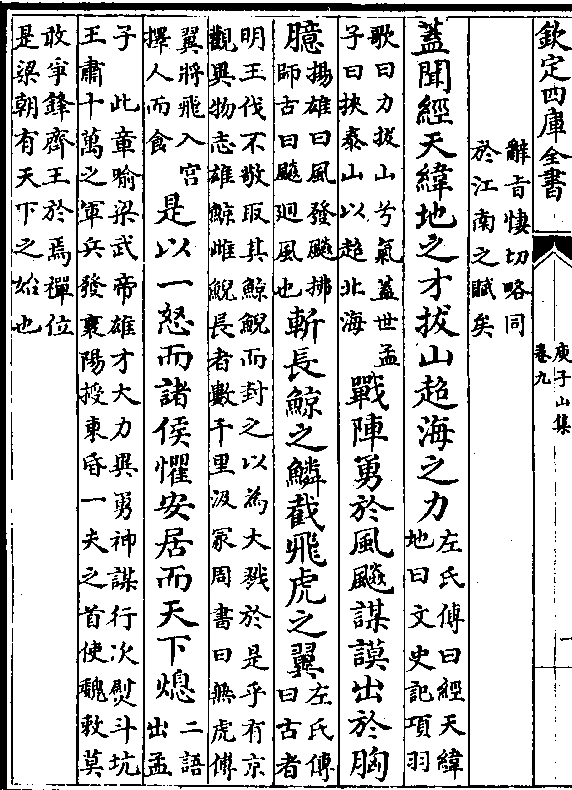 欽定四庫全書
庾子山集
卷九
一
辭旨悽切略同
於江南之賦矣
蓋聞經天緯地之才拔山超海之力
左氏傳曰經天緯
地曰文史記項羽
歌曰力拔山兮氣蓋世孟
子曰挾泰山以超北海
戰陣勇於風飈謀謨出於胸
臆
揚雄曰風發飈拂
師古曰飈廻風也
斬長鯨之鱗截飛虎之翼
左氏傳
曰古者
明王伐不敬取其鯨鯢而封之以為大戮於是乎有京
觀異物志雄鯨雌鯢長者數千里汲冢周書曰無虎傅
翼將飛入宮
擇人而食
是以一怒而諸侯懼安居而天下熄
二語
出孟
子 此章喻梁武帝雄才大力異勇神謀行次熨斗坑
王肅十萬之軍兵發襄陽授東昏一夫之首使魏敕莫
敢爭鋒齊王於焉禪位
是梁朝有天下之始也